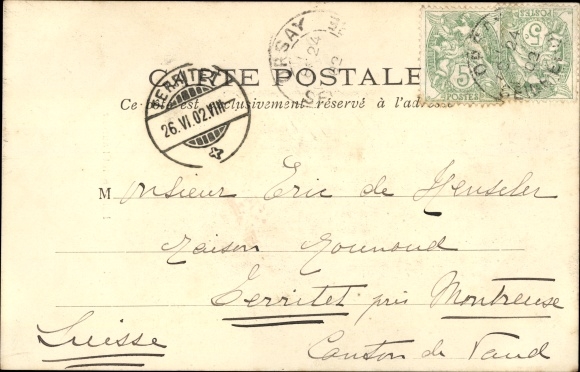 ORSAY
24
02
5 5
POSTES
CARTE POSTALE
Ce est exclusivement réservé à l'adresse
TERRITET
26.VI.02.VIII
Monsieur Eric de
Maison Mounoud
Territet près Montreuse
Suisse
Canton de Vaud